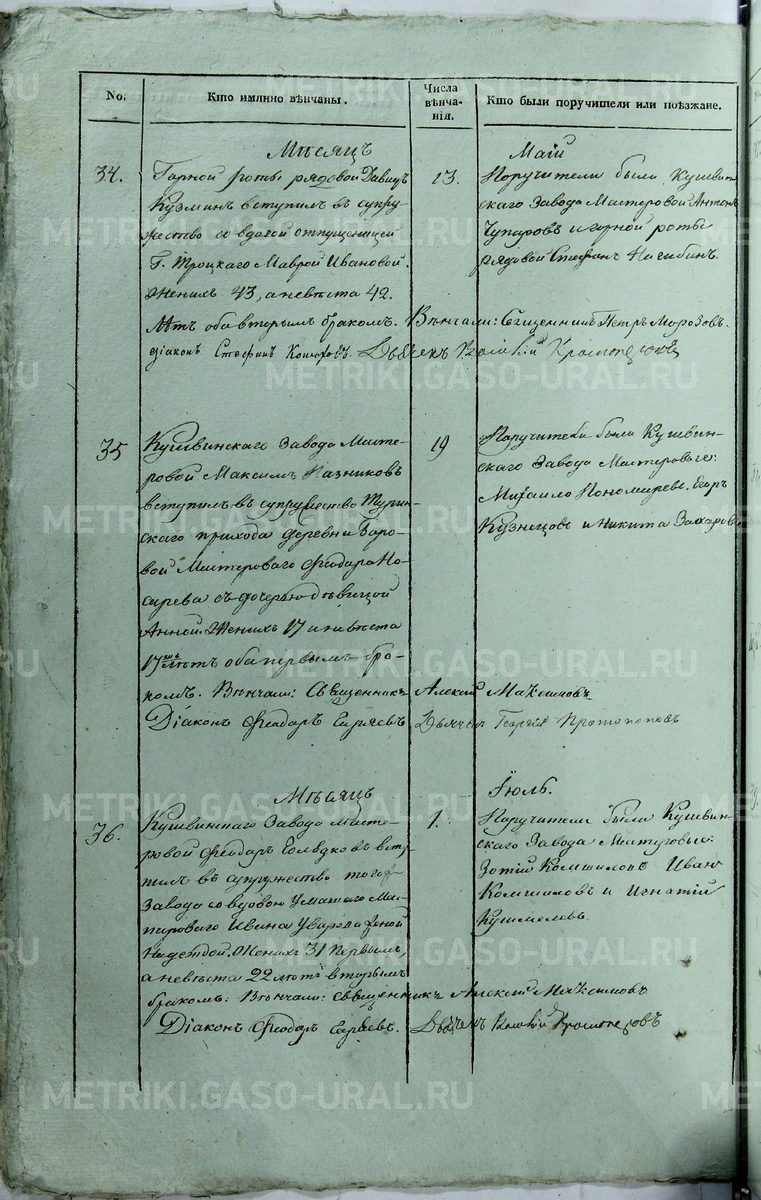 No. Кто имянно вѣнчаны. Числа вѣнчанія. Кто были поручители или поѣзжане.
Мѣсяцъ Маій
34. Горной роты рядовой Давидъ
Кузминъ вступилъ въ супру-
жество со вдовой отпущеницей
Г. Троцкаго Маврой Ивановой.
Женихъ 43, а невѣста 42.
Лѣтъ оба вторымъ бракомъ. Вѣнчали: Священникъ Петръ Морозовъ.
діаконъ Стефанъ Дьячекъ
13. Поручители были Кушвин-
скаго Завода Мастеровой Антонъ
Чупаровъ и горной роты
рядовой Стефанъ Нагибинъ.
35 Кушвинскаго Завода Масте-
ровой Максимъ Казниковъ
вступилъ въ супружество Турин-
скаго прихода деревни Боро-
вой Мастероваго Ѳеодора Но-
сырева съ дочерью дѣвицой
Анной. Женихъ 17 и невѣста
17 лѣтъ оба первымъ бра-
комъ. Вѣнчали: Священникъ Алексій
Діаконъ Ѳеодоръ Дьячекъ Георгій Протопоповъ
19 Поручители были Кушвин-
скаго Завода Мастеровые:
Михайло Пономаревъ, Егоръ
Кузнецовъ и Никита Захаровъ
Мѣсяцъ Іюль.
36. Кушвинскаго Завода Масте-
ровой Ѳеодоръ всту-
пилъ въ супружество того
Завода со вдовою Умѣршаго Мас-
тероваго Ивана Уварова женой
Надеждой. Женихъ 31 первымъ,
а невѣста 22 лѣтъ вторымъ
бракомъ: Вѣнчали: священникъ Алексій
Діаконъ Ѳеодоръ Дьячекъ
1. Поручители были Кушвин-
скаго Завода Мастеровые:
Зотій Комшиловъ Иванъ
Комшиловъ и Игнатій
METRIKI.GASO-URAL.RU